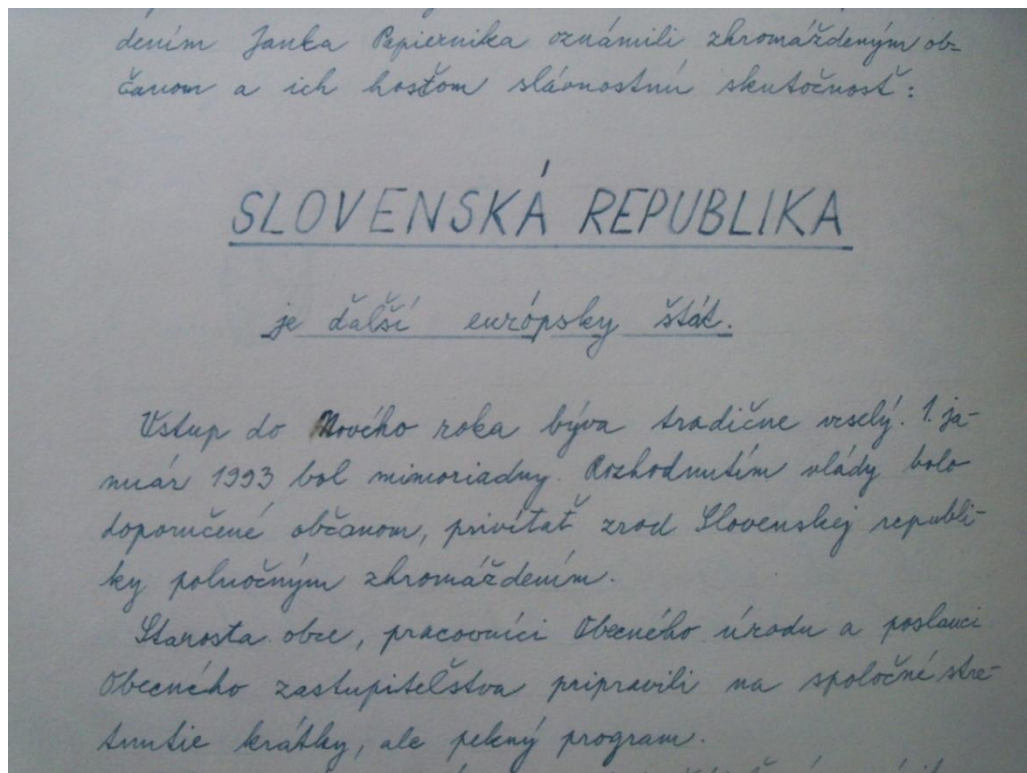 dením Janka Papierníka oznámili zhromáždeným ob=
čanom a ich hosťom slávnostnú skutočnosť:
SLOVENSKÁ REPUBLIKA
je ďalší európsky štát.
Vstup do Nového roka býva tradične veselý. 1. ja-
nuár 1993 bol mimoriadny. Rozhodnutím vlády bolo
doporučené občanom, privítať zrod Slovenskej republi-
ky polnočným zhromáždením.
Starosta obce, pracovníci Obecného úradu a poslanci
Obecného zastupiteľstva pripravili na spoločné stre-
tnutie krátky, ale pekný program.